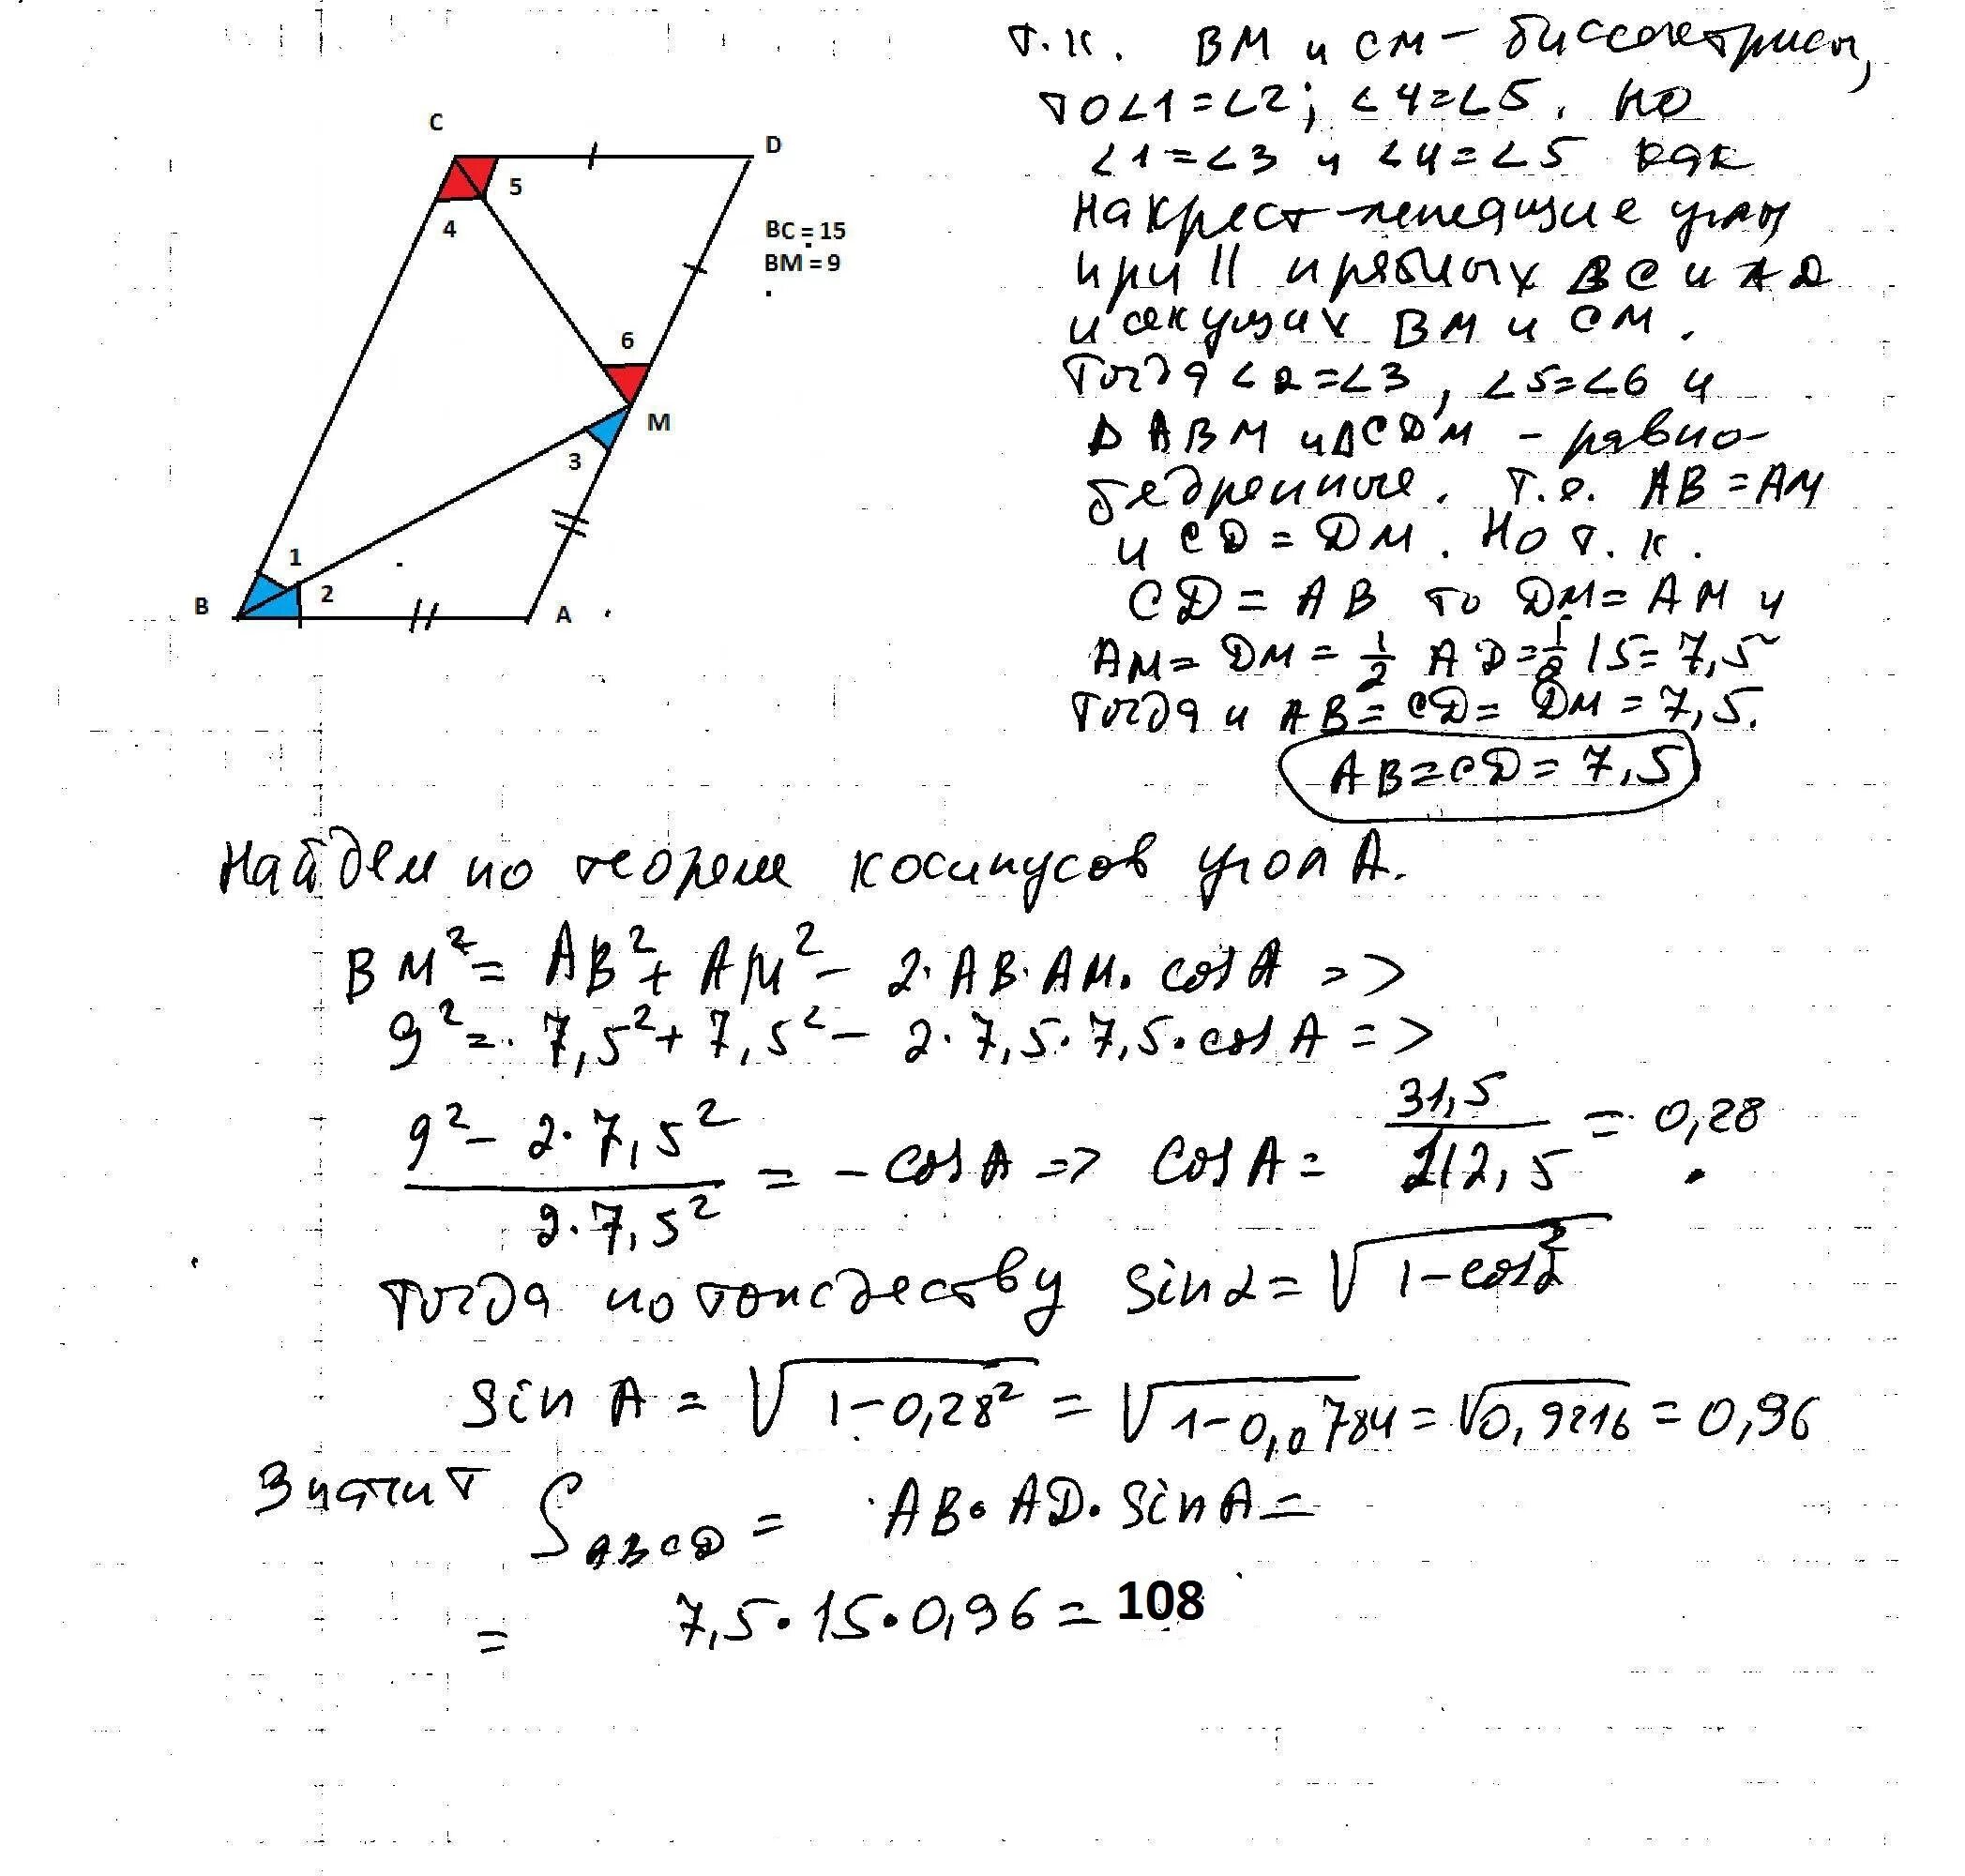 C
D
5
4
BC = 15
BM = 9
6
M
3
1
2
B
A
т.к. BM и CM – биссектрисы,
то ∠1=∠2; ∠4=∠5. но
∠1=∠3 и ∠4=∠5 как
накрест-лежащие углы
при || прямых BC и AD
и секущих BM и CM.
Тогда ∠2=∠3, ∠5=∠6 и
Δ ABM и ΔCDM – равно-
бедренные. т.е. AB=AM
и CD = DM. Но т.к.
CD = AB то DM = AM и
AM = DM = 1/2 AD = 1/2 15 = 7,5
Тогда и AB = CD = DM = 7,5.
AB=CD= 7,5
Найдем по теореме косинусов угол A.
BM² = AB² + AM² – 2·AB·AM·cosA =>
9² = 7,5² + 7,5² – 2·7,5·7,5·cosA =>
(9² – 2·7,5²)/(2·7,5²) = –cosA => cosA = 31,5/112,5 = 0,28
Тогда по тождеству sinα = √(1–cos²α)
sin A = √(1–0,28²) = √(1–0,0784) = √0,9216 = 0,96
Значит S ABCD = AB·AD·sinA =
= 7,5·15·0,96 = 108